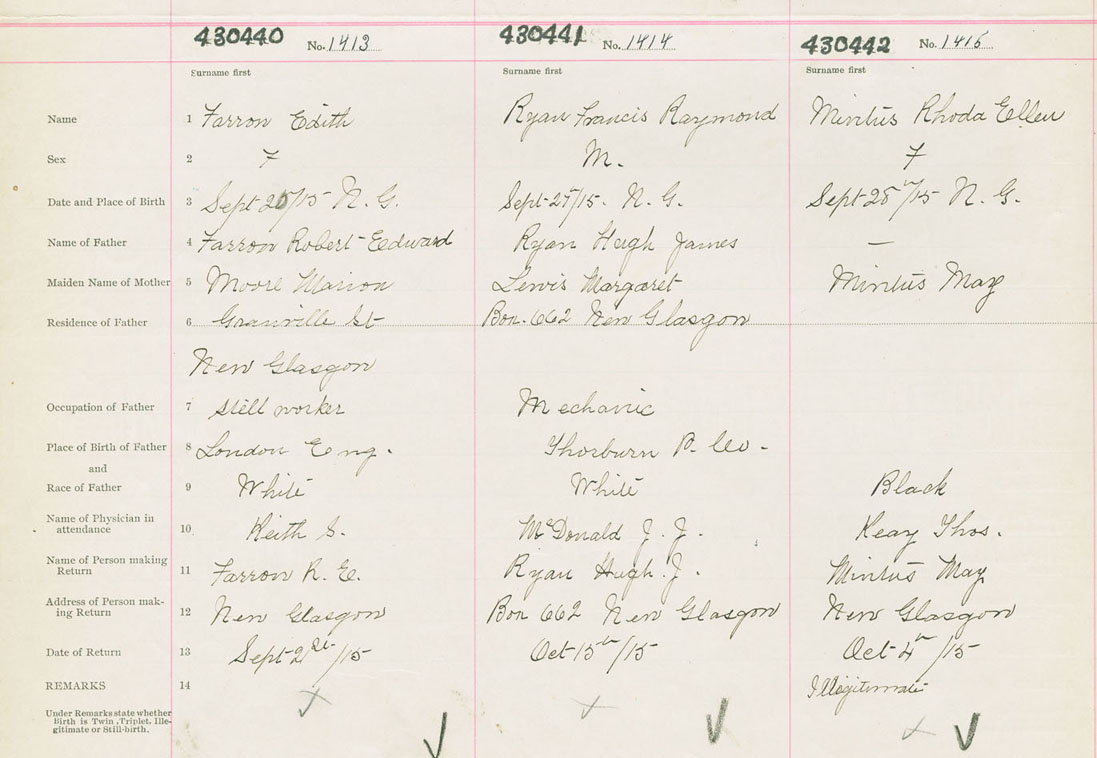 430440 No. 1413 430441 No. 1414 430442 No. 1415
Surname first Surname first Surname first
Name 1 Farron Edith Ryan Francis Raymond Mintus Rhoda Ellen
Sex 2 F M. F
Date and Place of Birth 3 Sept /15 N. G. Sept 27/15. N. G. Sept 28"/15 N. G.
Name of Father 4 Farron Robert Edward Ryan Hugh James —
Maiden Name of Mother 5 Moore Marion Lewis Margaret Mintus May
Residence of Father 6 Granville St Box. 662 New Glasgow
New Glasgow
Occupation of Father 7 Steel worker Mechanic
Place of Birth of Father 8 London Eng. Thorburn P. Co.
and
Race of Father 9 White White Black
Name of Physician in
attendance 10 Keith S. McDonald J. J. Keay Thos.
Name of Person making
Return 11 Farron R. E. Ryan Hugh. J. Mintus May
Address of Person mak-
ing Return 12 New Glasgow Box 662 New Glasgow New Glasgow
Date of Return 13 Sept /15 Oct 15th/15 Oct 4th/15
REMARKS 14 Illegitimate
Under Remarks state whether
Birth is Twin, Triplet, Ille-
gitimate or Still-birth.